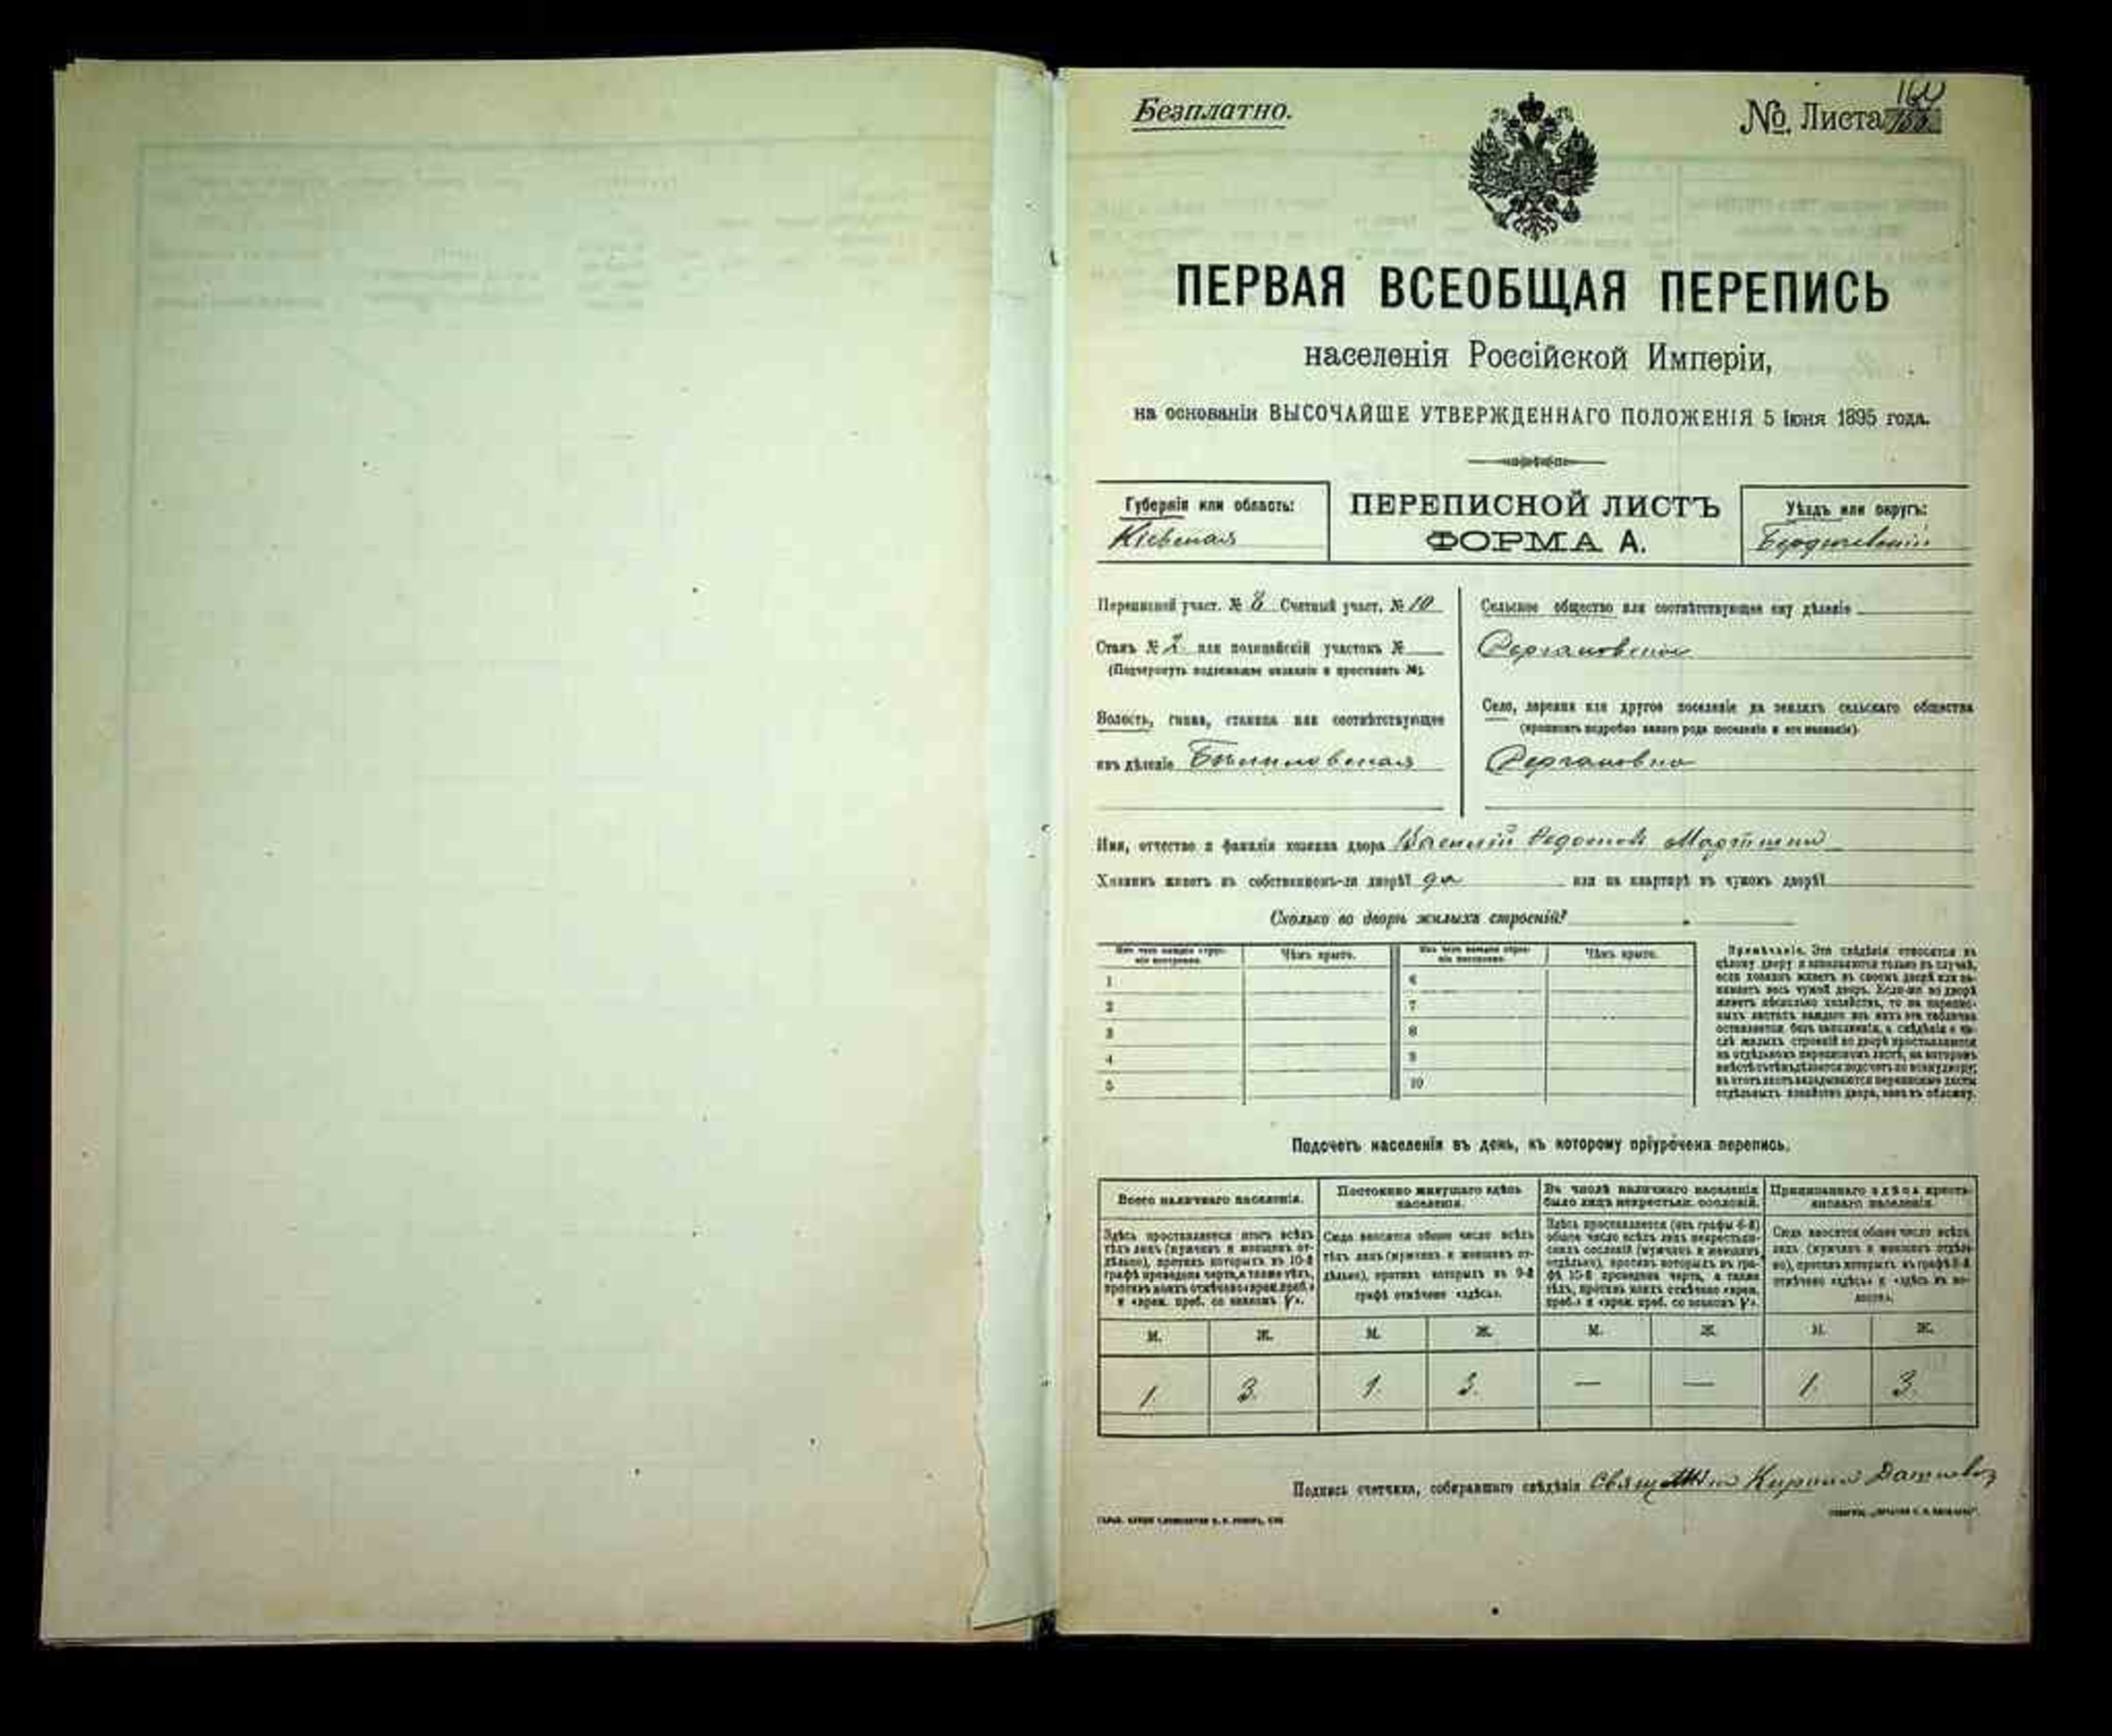 Безплатно.
№ Листа
ПЕРВАЯ ВСЕОБЩАЯ ПЕРЕПИСЬ
населенія Россійской Имперіи,
на основаніи ВЫСОЧАЙШЕ УТВЕРЖДЕННАГО ПОЛОЖЕНІЯ 5 Іюня 1895 года.
Губернія или область:
Кіевская
ПЕРЕПИСНОЙ ЛИСТЪ
ФОРМА А.
Уѣздъ или округъ:
Бердичевскій
Переписной участ. № Счетный участ. № 10
Станъ № 2 или полицейскій участокъ №
(Подчеркнуть подлежащее названіе и проставить №).
Волость, гмина, станица или соотвѣтствующее
имъ дѣленіе
Сельское общество или соотвѣтствующее ему дѣленіе
Село, деревня или другое поселеніе на земляхъ сельскаго общества
(прописать подробно какого рода поселеніе и его названіе).
Имя, отчество и фамилія хозяина двора Василій
Хозяинъ живетъ въ собственномъ-ли дворѣ? да или на квартирѣ въ чужомъ дворѣ?
Сколько во дворѣ жилыхъ строеній?
Изъ чего каждое строеніе построено. Чѣмъ крыто. Изъ чего каждое строеніе построено. Чѣмъ крыто.
1 6
2 7
3 8
4 9
5 10
Примѣчаніе. Эти свѣдѣнія относятся къ
цѣлому двору и заполняются только въ случаѣ,
если хозяинъ живетъ въ своемъ дворѣ или занимаетъ
весь чужой дворъ. Если-же во дворѣ
живетъ нѣсколько хозяйствъ, то на переписныхъ
листахъ каждаго изъ нихъ эта табличка
оставляется безъ заполненія, а свѣдѣнія о числѣ
жилыхъ строеній во дворѣ проставляются
на отдѣльномъ переписномъ листѣ, на которомъ
вмѣстѣ съ тѣмъ дѣлается подсчетъ по всему двору;
въ этотъ листъ вкладываются переписные листы
отдѣльныхъ хозяйствъ двора, какъ въ обложку.
Подсчетъ населенія въ день, къ которому пріурочена перепись.
Всего наличнаго населенія.
Постоянно живущаго здѣсь населенія.
Въ числѣ наличнаго населенія было лицъ некрестьян. сословій.
Приписаннаго здѣсь крестьянскаго населенія.
Здѣсь проставляется итогъ всѣхъ
тѣхъ лицъ (мужчинъ и женщинъ отдѣльно),
противъ которыхъ въ 10-й
графѣ проведена черта, а также тѣхъ,
противъ коихъ отмѣчено «врем. преб.»
и «врем. преб. со знакомъ V».
Сюда вносится общее число всѣхъ
тѣхъ лицъ (мужчинъ и женщинъ отдѣльно),
противъ которыхъ въ 9-й
графѣ отмѣчено «здѣсь».
Здѣсь проставляется (изъ графы 6-й)
общее число всѣхъ лицъ некрестьянскихъ
сословій (мужчинъ и женщинъ
отдѣльно), противъ которыхъ въ графѣ
10-й проведена черта, а также
тѣхъ, противъ коихъ отмѣчено «врем.
преб.» и «врем. преб. со знакомъ V».
Сюда вносится общее число всѣхъ
лицъ (мужчинъ и женщинъ отдѣльно),
противъ которыхъ въ графѣ 8-й
отмѣчено «здѣсь» и «здѣсь въ волости».
М. Ж. М. Ж. М. Ж. М. Ж.
1. 3. 1. 3. — — 1. 3.
Подпись счетчика, собиравшаго свѣдѣнія